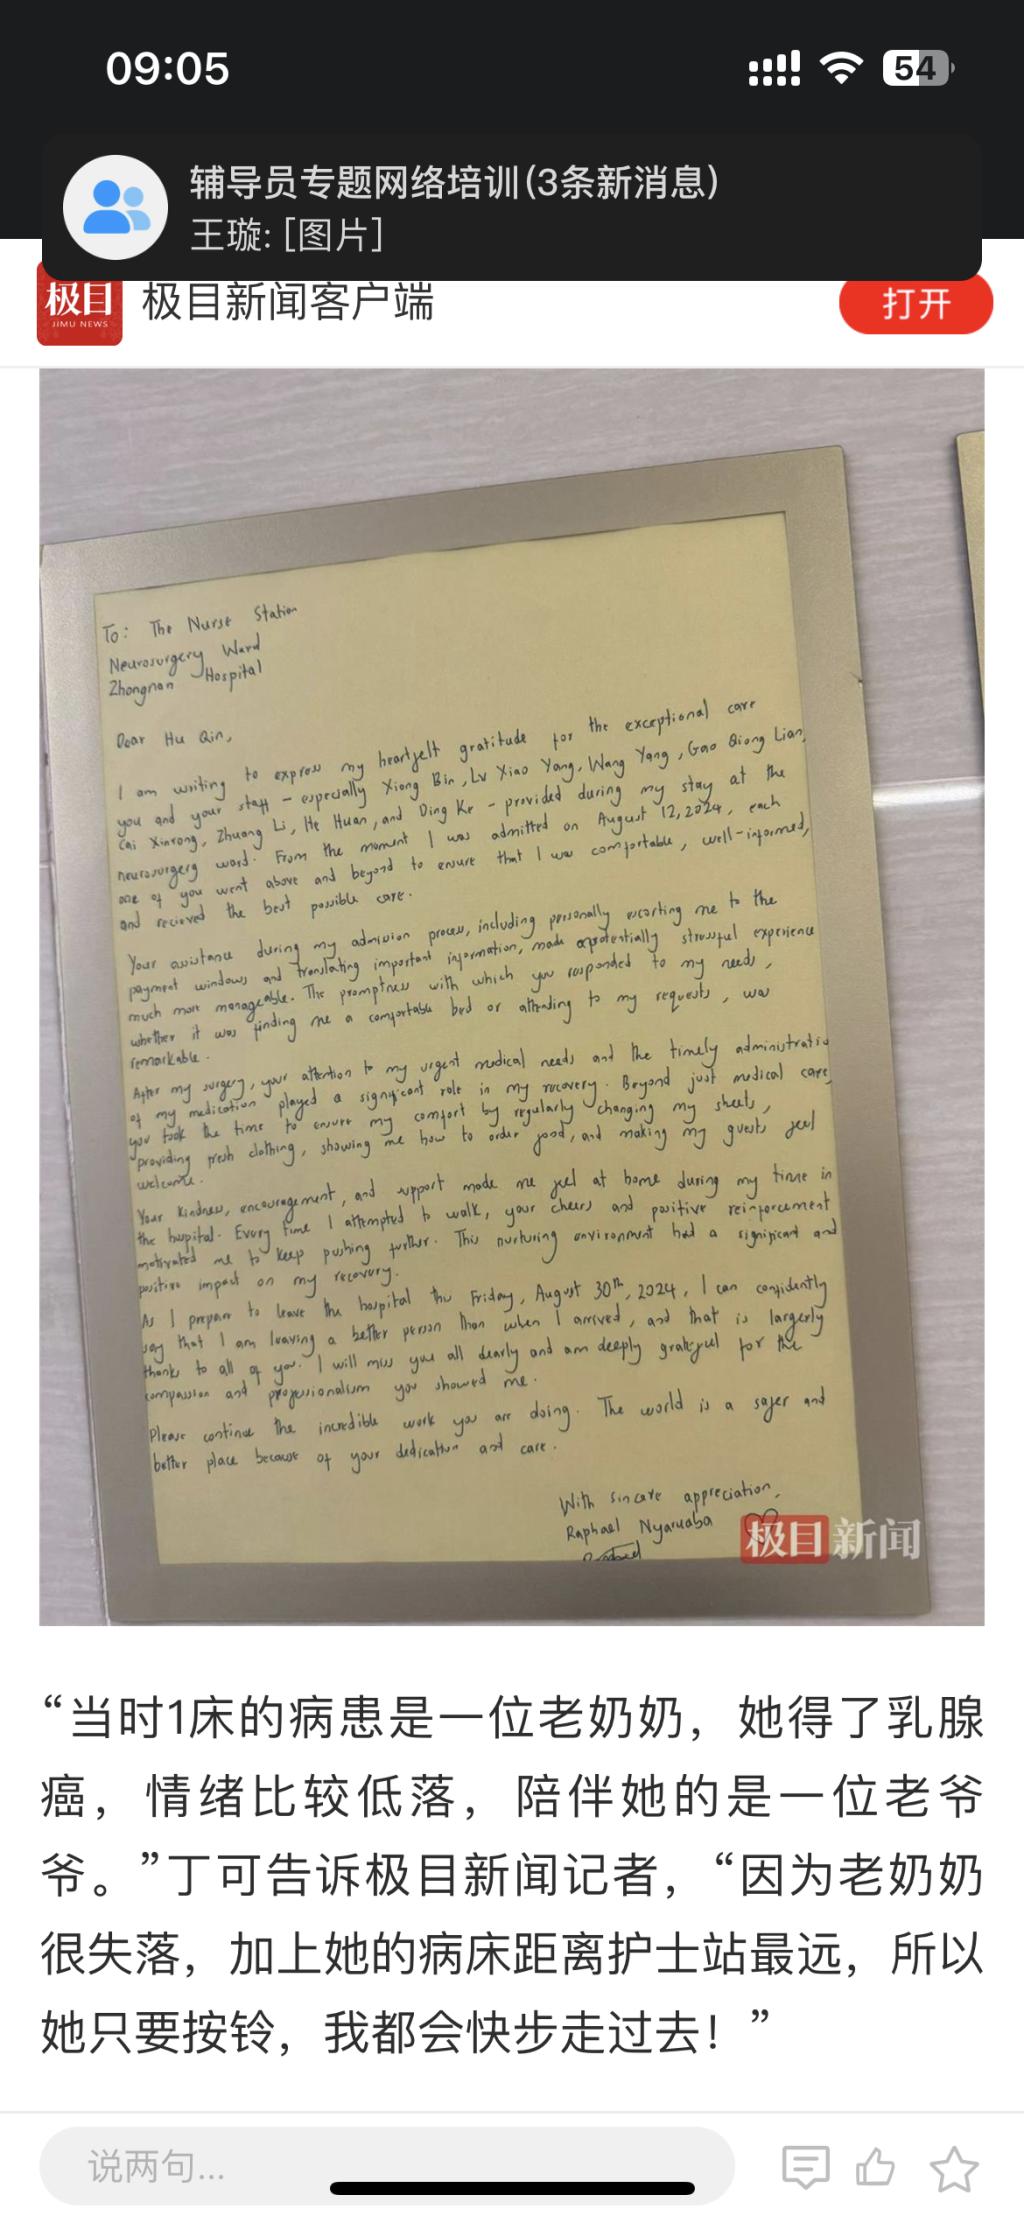 09:05
54
辅导员专题网络培训(3条新消息)
王璇: [图片]
极目
JIMU NEWS
极目新闻客户端
打开
To: The Nurse Station
Neurosurgery Ward
Zhongnan Hospital
Dear Hu Qin,
I am writing to express my heartfelt gratitude for the exceptional care
you and your staff - especially Xiong Bin, Lv Xiao Yang, Wang Yang, Gao Qiong Lian,
Cai Xinrong, Zhuang Li, He Huan, and Ding Ke - provided during my stay at the
neurosurgery ward. From the moment I was admitted on August 12, 2024, each
one of you went above and beyond to ensure that I was comfortable, well-informed,
and recieved the best possible care.
Your assistance during my admission process, including personally escorting me to the
payment windows and translating important information, made a potentially stressful experience
much more manageable. The promptness with which you responded to my needs,
whether it was finding me a comfortable bed or attending to my requests, was
remarkable.
After my surgery, your attention to my urgent medical needs and the timely administratio
of my medication played a significant role in my recovery. Beyond just medical care,
you took the time to ensure my comfort by regularly changing my sheets,
providing fresh clothing, showing me how to order food, and making my guests feel
welcome.
Your kindness, encouragement, and support made me feel at home during my time in
the hospital. Every time I attempted to walk, your cheers and positive reinforcement
motivated me to keep pushing further. This nurturing environment had a significant and
positive impact on my recovery.
As I prepare to leave the hospital this Friday, August 30th, 2024, I can confidently
say that I am leaving a better person than when I arrived, and that is largely
thanks to all of you. I will miss you all dearly and am deeply grateful for the
compassion and professionalism you showed me.
Please continue the incredible work you are doing. The world is a safer and
better place because of your dedication and care.
With sincere appreciation,
Raphael Nyaruaba
极目新闻
“当时1床的病患是一位老奶奶，她得了乳腺
癌，情绪比较低落，陪伴她的是一位老爷
爷。”丁可告诉极目新闻记者，“因为老奶奶
很失落，加上她的病床距离护士站最远，所以
她只要按铃，我都会快步走过去！”
说两句...